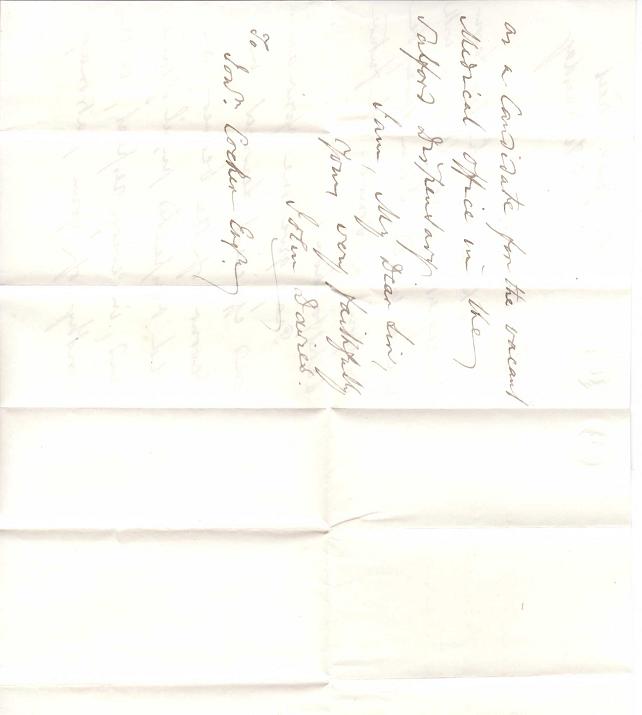 as a Candidate for the vacant
Medical Office in the
Salford Dispensary
I am, My Dear Sir,
Yours very faithfully
John Davies.
To
Cocker Esqr.